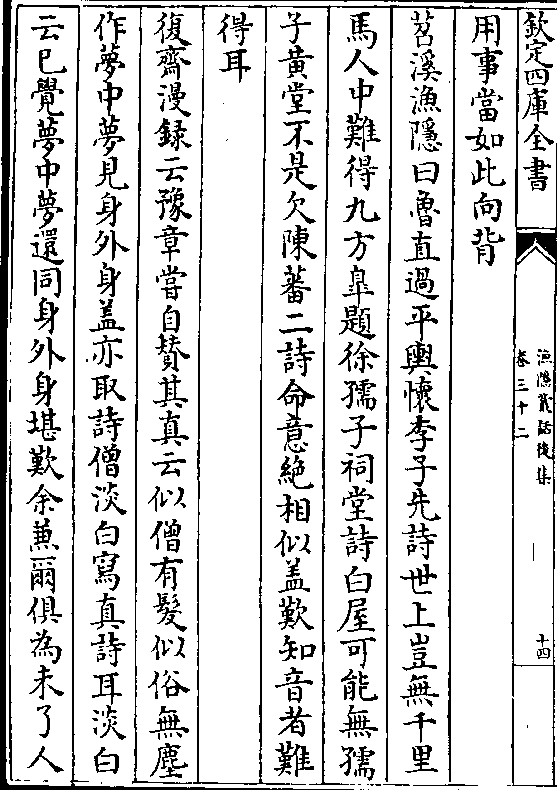 欽定四庫全書
漁隱叢話後集
卷三十二
十四
用事當如此向背
苕溪漁隱曰魯直過平輿懷李子先詩世上豈無千里
馬人中難得九方臯題徐孺子祠堂詩白屋可能無孺
子黄堂不是欠陳蕃二詩命意絶相似盖歎知音者難
得耳
復齋漫録云豫章嘗自賛其真云似僧有髪似俗無塵
作夢中夢見身外身盖亦取詩僧淡白寫真詩耳淡白
云已覺夢中夢還同身外身堪歎余兼爾俱為未了人